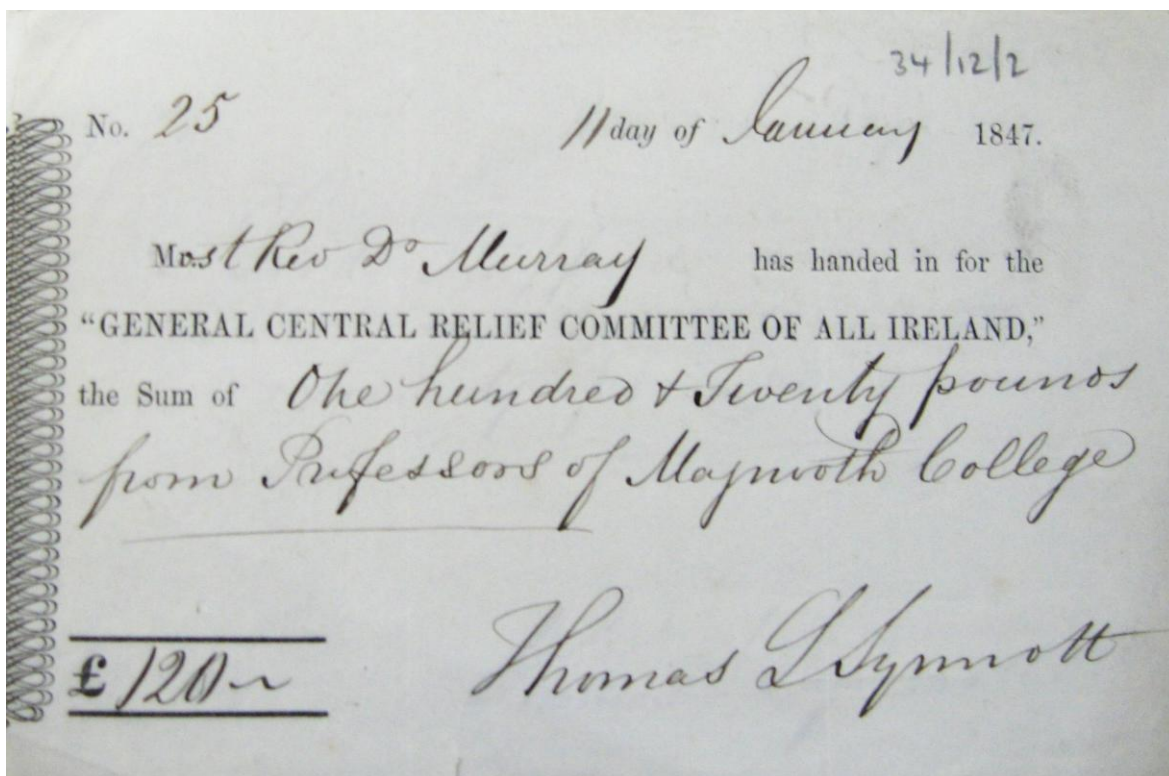 34/12/2
No. 25 11 day of January 1847.
Most Rev Dr Murray has handed in for the
"GENERAL CENTRAL RELIEF COMMITTEE OF ALL IRELAND,"
the Sum of One hundred & Twenty pounds
from Professors of Maynooth College
Thomas L Synnott
£ 120~